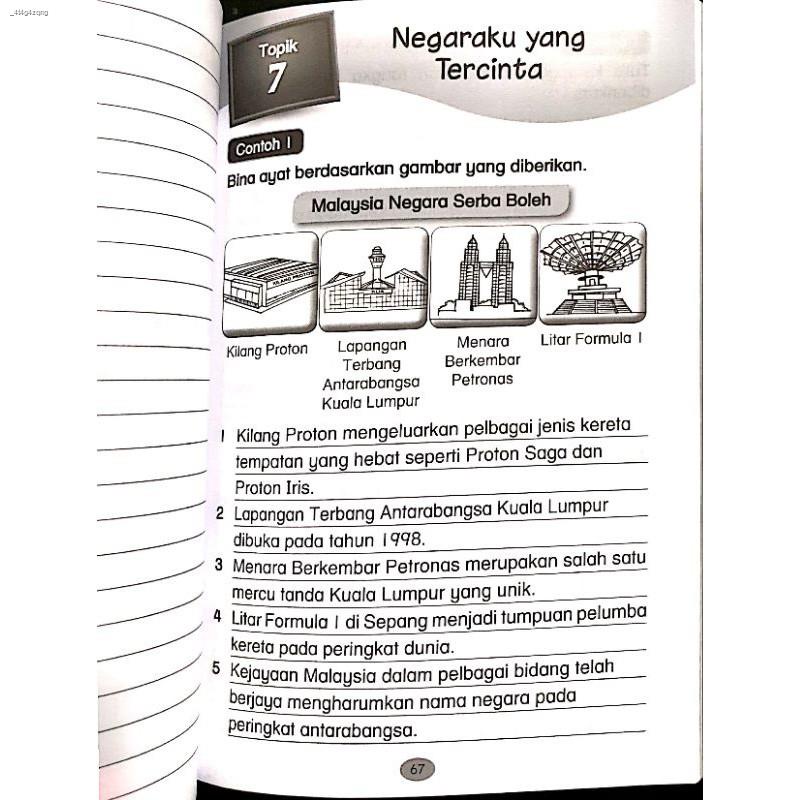 _4f4g4zqng
Topik
7
Negaraku yang
Tercinta
Contoh 1
Bina ayat berdasarkan gambar yang diberikan.
Malaysia Negara Serba Boleh
KILANG PROTON
KLIA
Kilang Proton
Lapangan
Terbang
Antarabangsa
Kuala Lumpur
Menara
Berkembar
Petronas
Litar Formula 1
1 Kilang Proton mengeluarkan pelbagai jenis kereta
tempatan yang hebat seperti Proton Saga dan
Proton Iris.
2 Lapangan Terbang Antarabangsa Kuala Lumpur
dibuka pada tahun 1998.
3 Menara Berkembar Petronas merupakan salah satu
mercu tanda Kuala Lumpur yang unik.
4 Litar Formula 1 di Sepang menjadi tumpuan pelumba
kereta pada peringkat dunia.
5 Kejayaan Malaysia dalam pelbagai bidang telah
berjaya mengharumkan nama negara pada
peringkat antarabangsa.
67